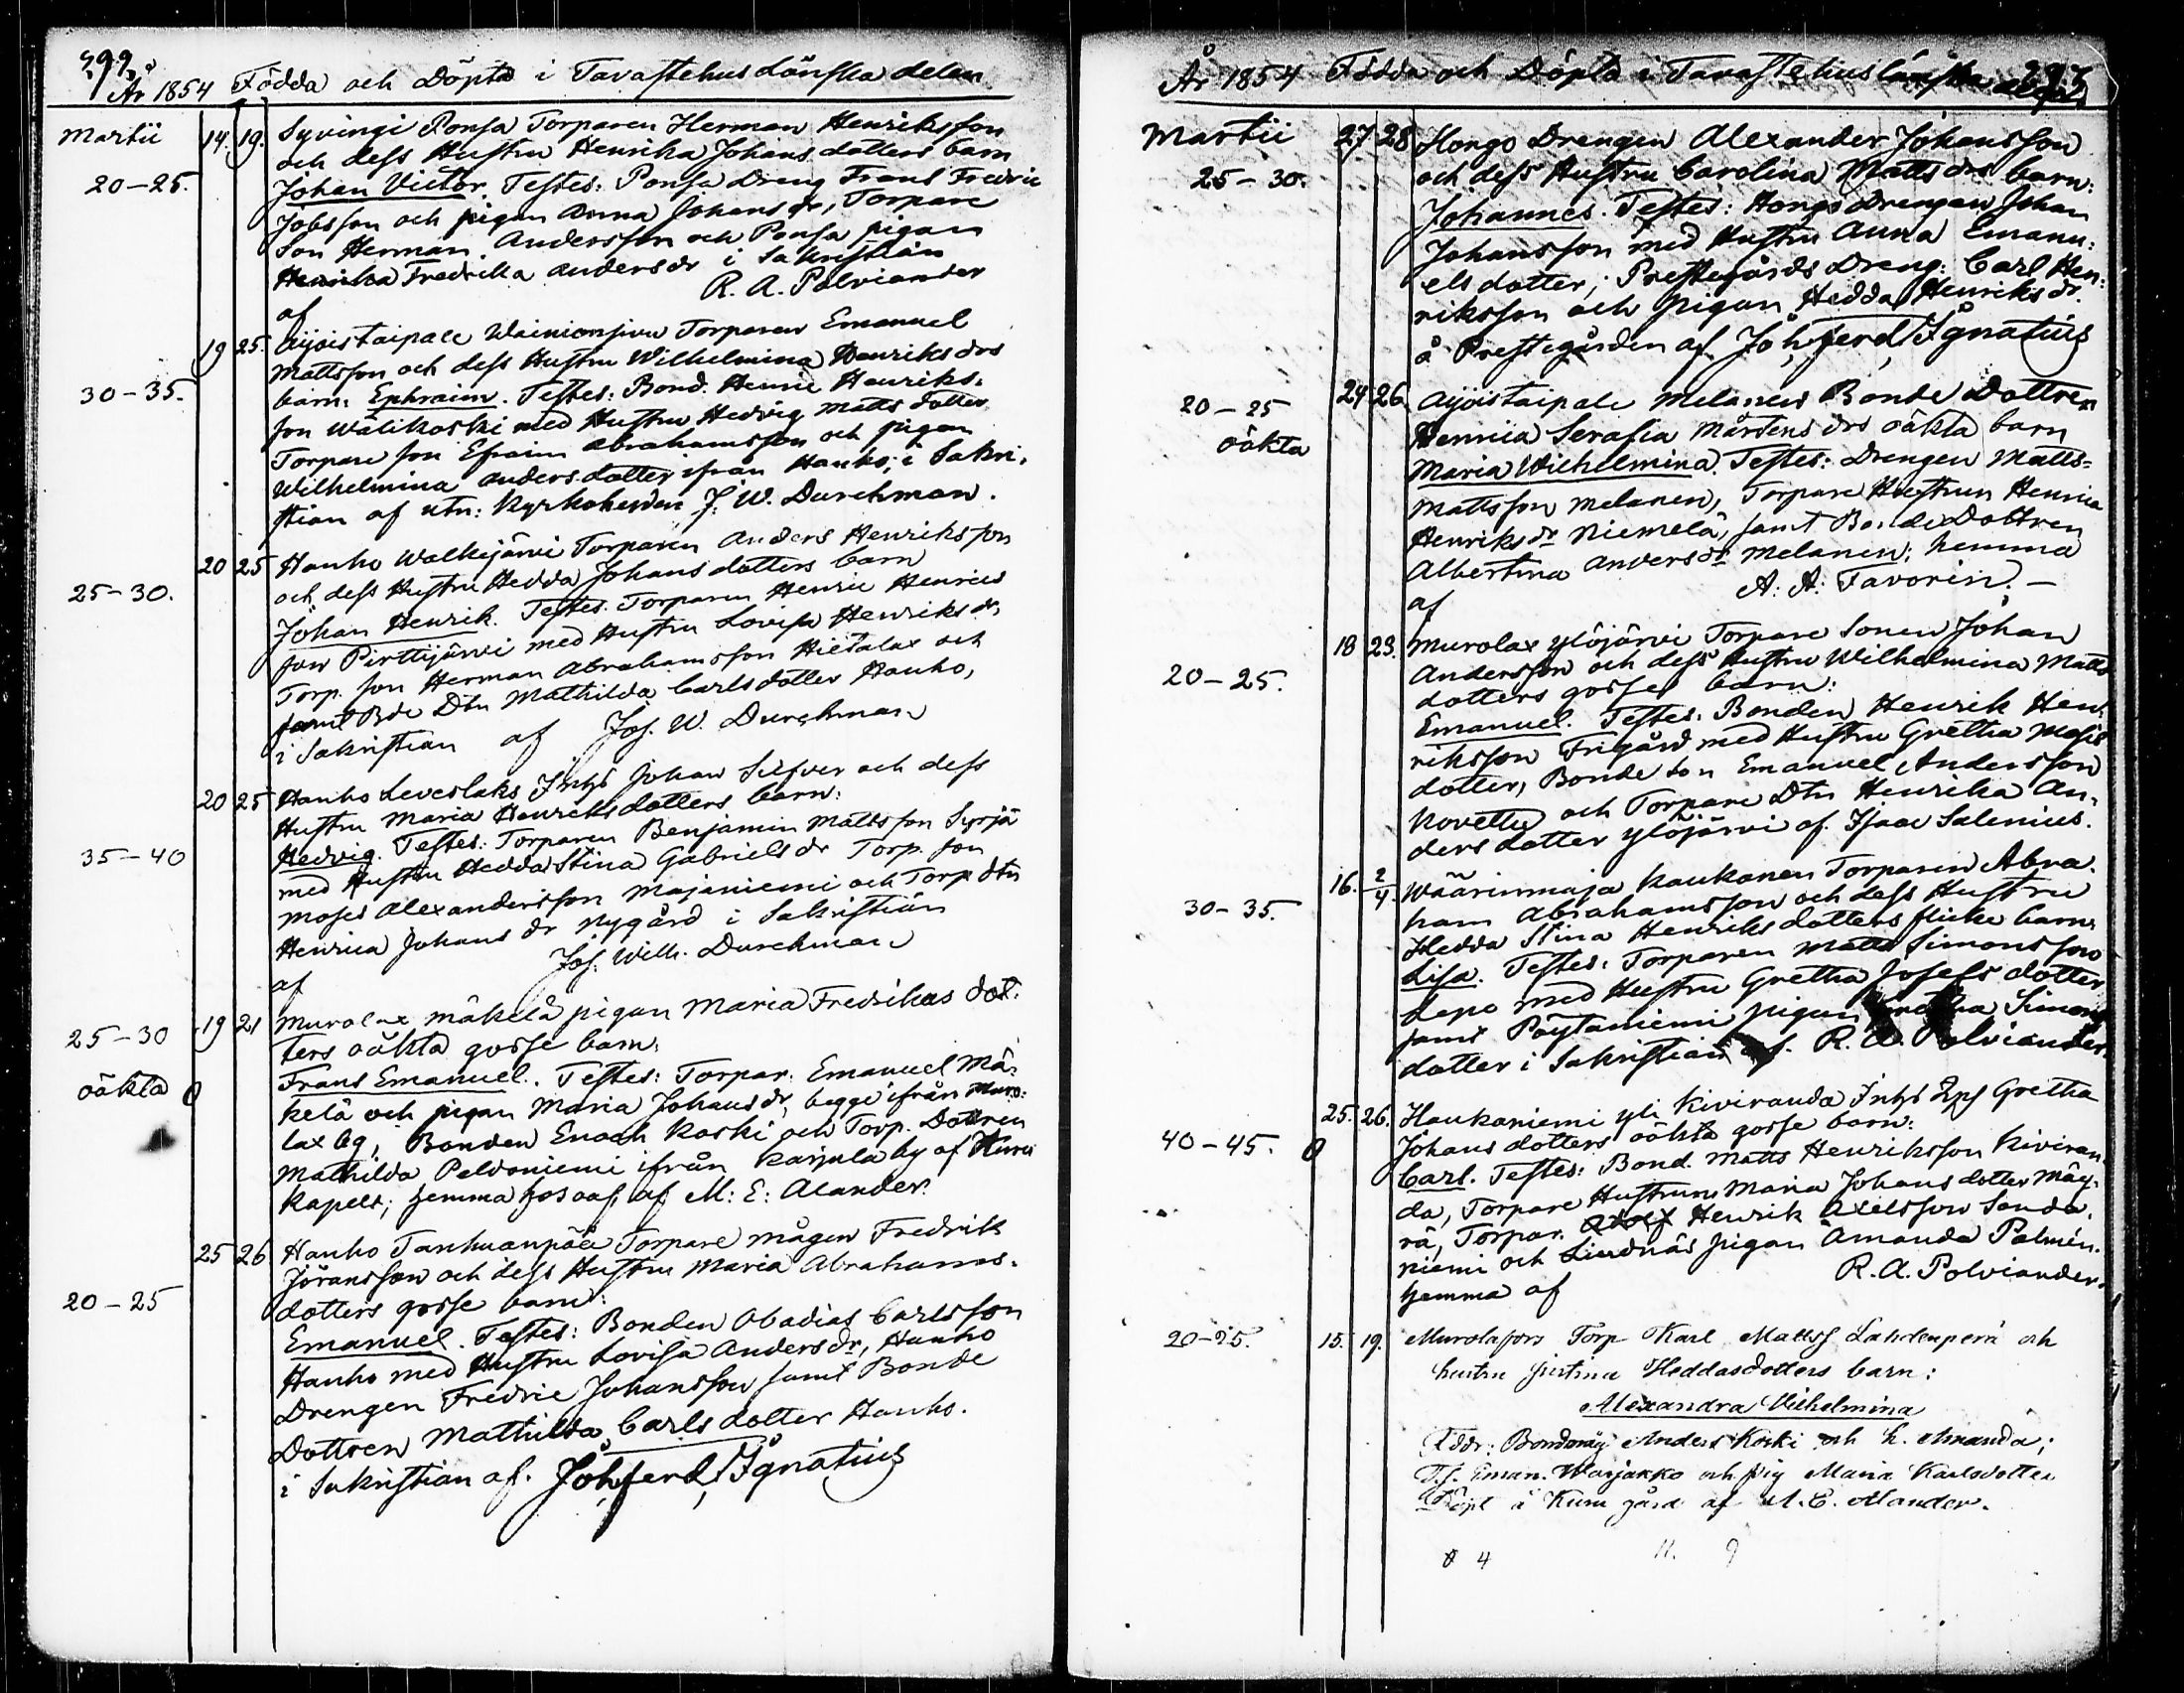 År 1854 Födda och Döpta i Tavastehus länska delen
Martii 14. 19. Syvingi Ponsa Torparen Herman Henriksson
och dess Hustru Henrika Johans dotters barn
20-25. Johan Victor. Testes: Ponsa Dreng Frans Fredric
Jobsson och pigan Anna Johans dr, Torpare
Son Herman Andersson och Ponsa pigan
Henrika Fredrika Anders dr i Sakristian
af R. A. Polviander
19 25. Äijöistaipale Torparen Emanuel
Mattsson och dess Hustru Wilhelmina Henriks drs
30-35. barn: Ephraim. Testes: Bond. Henric Henriks.
son Wälikoski med Hustru Hedvig Matts dotter
Torpare son Efraim Abrahamsson och pigan
Wilhelmina Anders dotter ifrån Hanho; i Sakri.
stian af utn: Kyrkoherden J. W. Durchman.
20 25 Hanho Walkejärvi Torparen Anders Henriksson
25-30. och dess Hustru Hedda Johans dotters barn
Johan Henrik. Testes. Torparen Henric Henrics
son Pirttijärvi med Hustru Lovisa Henriks dr,
Torp. son Herman Abrahamsson Hietalax och
samt Bde Dtn Mathilda Carls dotter Hanho,
i Sakristian af Jos. W. Durchman
20 25 Hanho Leveslaks Inhs Johan Silfver och dess
Hustru Maria Henricks dotters barn:
35-40 Hedvig. Testes: Torparen Benjamin Mattsson Syrjä
med Hustru Hedda Stina Gabriels dr Torp. son
Moses Alexandersson Majaniemi och Torp dtn
Henrica Johans dr Nygård i Sakristian
af Jos. Wilh. Durchman
25-30 19 21 Murolax Mäkelä pigan Maria Fredrikas dot:
ters oäkta gosse barn:
oäkta Frans Emanuel. Testes: Torpar. Emanuel Mä-
kelä och pigan Maria Johans dr, begge ifrån Muro:
lax by, Bonden Enoch Koski och Torp. Dottren
Mathilda Peldoniemi ifrån Karjula by af Kuru
Kapell; hemma hos af M: E: Alander.
25 26 Hanho Tanhuanpää Torpare mågen Fredrik
Jöransson och dess Hustru Maria Abrahams-
20-25 dotters gosse barn:
Emanuel. Testes: Bonden Abadias Carlsson
Hanho med Hustru Lovisa Anders dr, Hanho
Drengen Fredric Johansson samt Bonde
Dottren Mathilda Carls dotter Hanho.
i Sakristian af. Joh, ferd, Ignatius
År 1854 Födda och Döpta i Tavastehus länska
Martii 27 28 Hongo Drengen Alexander Johansson
25-30. och dess Hustru Carolina Matts drs barn:
Johannes. Testes: Hongo Drengen Johan
Johansson med Hustru Anna Emanu:
els dotter; Prestegårds Dreng: Carl Hen:
riksson och pigan Hedda Henriks dr.
å Prestegården af Joh, ferd, Ignatius
20-25 24 26 Äijöistaipale Melanen Bonde Dottren
oäkta Henrica Serafia Mårtens drs oäkta barn
Maria Wilhelmina. Testes: Drengen Matts
Mattsson Melanen, Torpare Hustrun Henrica
Henriks dr Niemelä, samt Bonde Dottren
Albertina Anders dr Melanen; hemma
af A: A: Favorin. -
18 23. Murolax Ylöjärvi Torpare Sonen Johan
20-25. Andersson och dess Hustru Wilhelmina Matts
dotters gosse barn:
Emanuel. Testes. Bonden Henrik Hen:
riksson Frigård med Hustru Gretha Moses
dotter, Bonde Son Emanuel Andersson
och Torpare Dtn Henrika An-
ders dotter Ylöjärvi af. Isaac Salenius.
16. 2/4. Wäärinmaja Kaukanen Torparen Abra.
30-35. ham Abrahamsson och dess Hustru
Hedda Stina Henriks dotters flicke barn:
Lisa. Testes: Torparen Matts Simonsson
Lepo med Hustru Gretha Josefs dotter
samt Pöytäniemi pigan Simons
dotter i Sakristian af. R. A. Polviander.
25. 26. Haukoniemi yli Kiviranda Inhs Gretha
40-45. Johans dotters oäkta gosse barn:
Carl. Testes: Bond. Matts Henriksson Kiviran
da, Torpare Hustrun Maria Johans dotter Mäy-
rä, Torpar. Henrik Axelsson Sando.
niemi och Lindnäs pigan Amanda Palmén.
hemma af R. A. Polviander.
20-25. 15. 19. Murolafors Torp Karl Mattss Lahdenperä och
hustru Justina Heddasdotters barn:
Alexandra Vilhelmina
Fddr: Bondemåg Anders Koski och h. Amanda;
T.s. Eman. Warjakko och pig Maria Karlsdotter
Döpt å Kuru gård af M. E. Alander.
4 11. 9